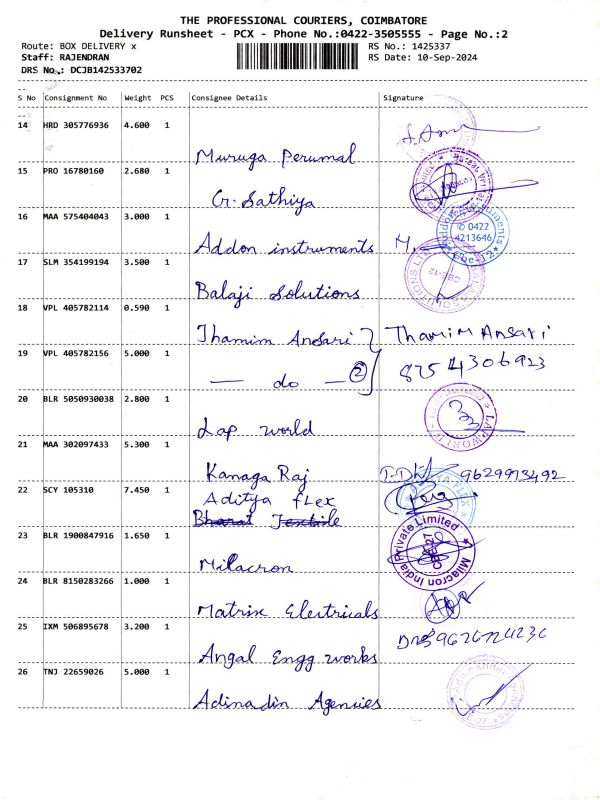 THE PROFESSIONAL COURIERS, COIMBATORE
Delivery Runsheet - PCX - Phone No.:0422-3505555 - Page No.:2
Route: BOX DELIVERY x RS No.: 1425337
Staff: RAJENDRAN RS Date: 10-Sep-2024
DRS No.: DCJB142533702
S No Consignment No Weight PCS Consignee Details Signature
14 HRD 305776936 4.600 1
Muruga Perumal
15 PRO 16780160 2.680 1
Cr. Sathiya
16 MAA 575404043 3.000 1
Addon instruments
© 0422
4213646
Cbe-12
17 SLM 354199194 3.500 1
Balaji Solutions
CBE-12
18 VPL 405782114 0.590 1
Thamim Ansari Thamim Ansari
19 VPL 405782156 5.000 1
— do — 2 8754306923
20 BLR 5050930038 2.800 1
Lap world
LAPWORLD
21 MAA 302097433 5.300 1
Kanaga Raj 9629993492
22 SCY 105310 7.450 1
Aditya flex
Bharat Textile
23 BLR 1900847916 1.650 1
Milacron
Milacron India Private Limited
CBE-27
24 BLR 8150283266 1.000 1
Matrix Electricals
25 IXM 506895678 3.200 1
Angal Engg works
26 TNJ 22659026 5.000 1
Adinadin Agencies